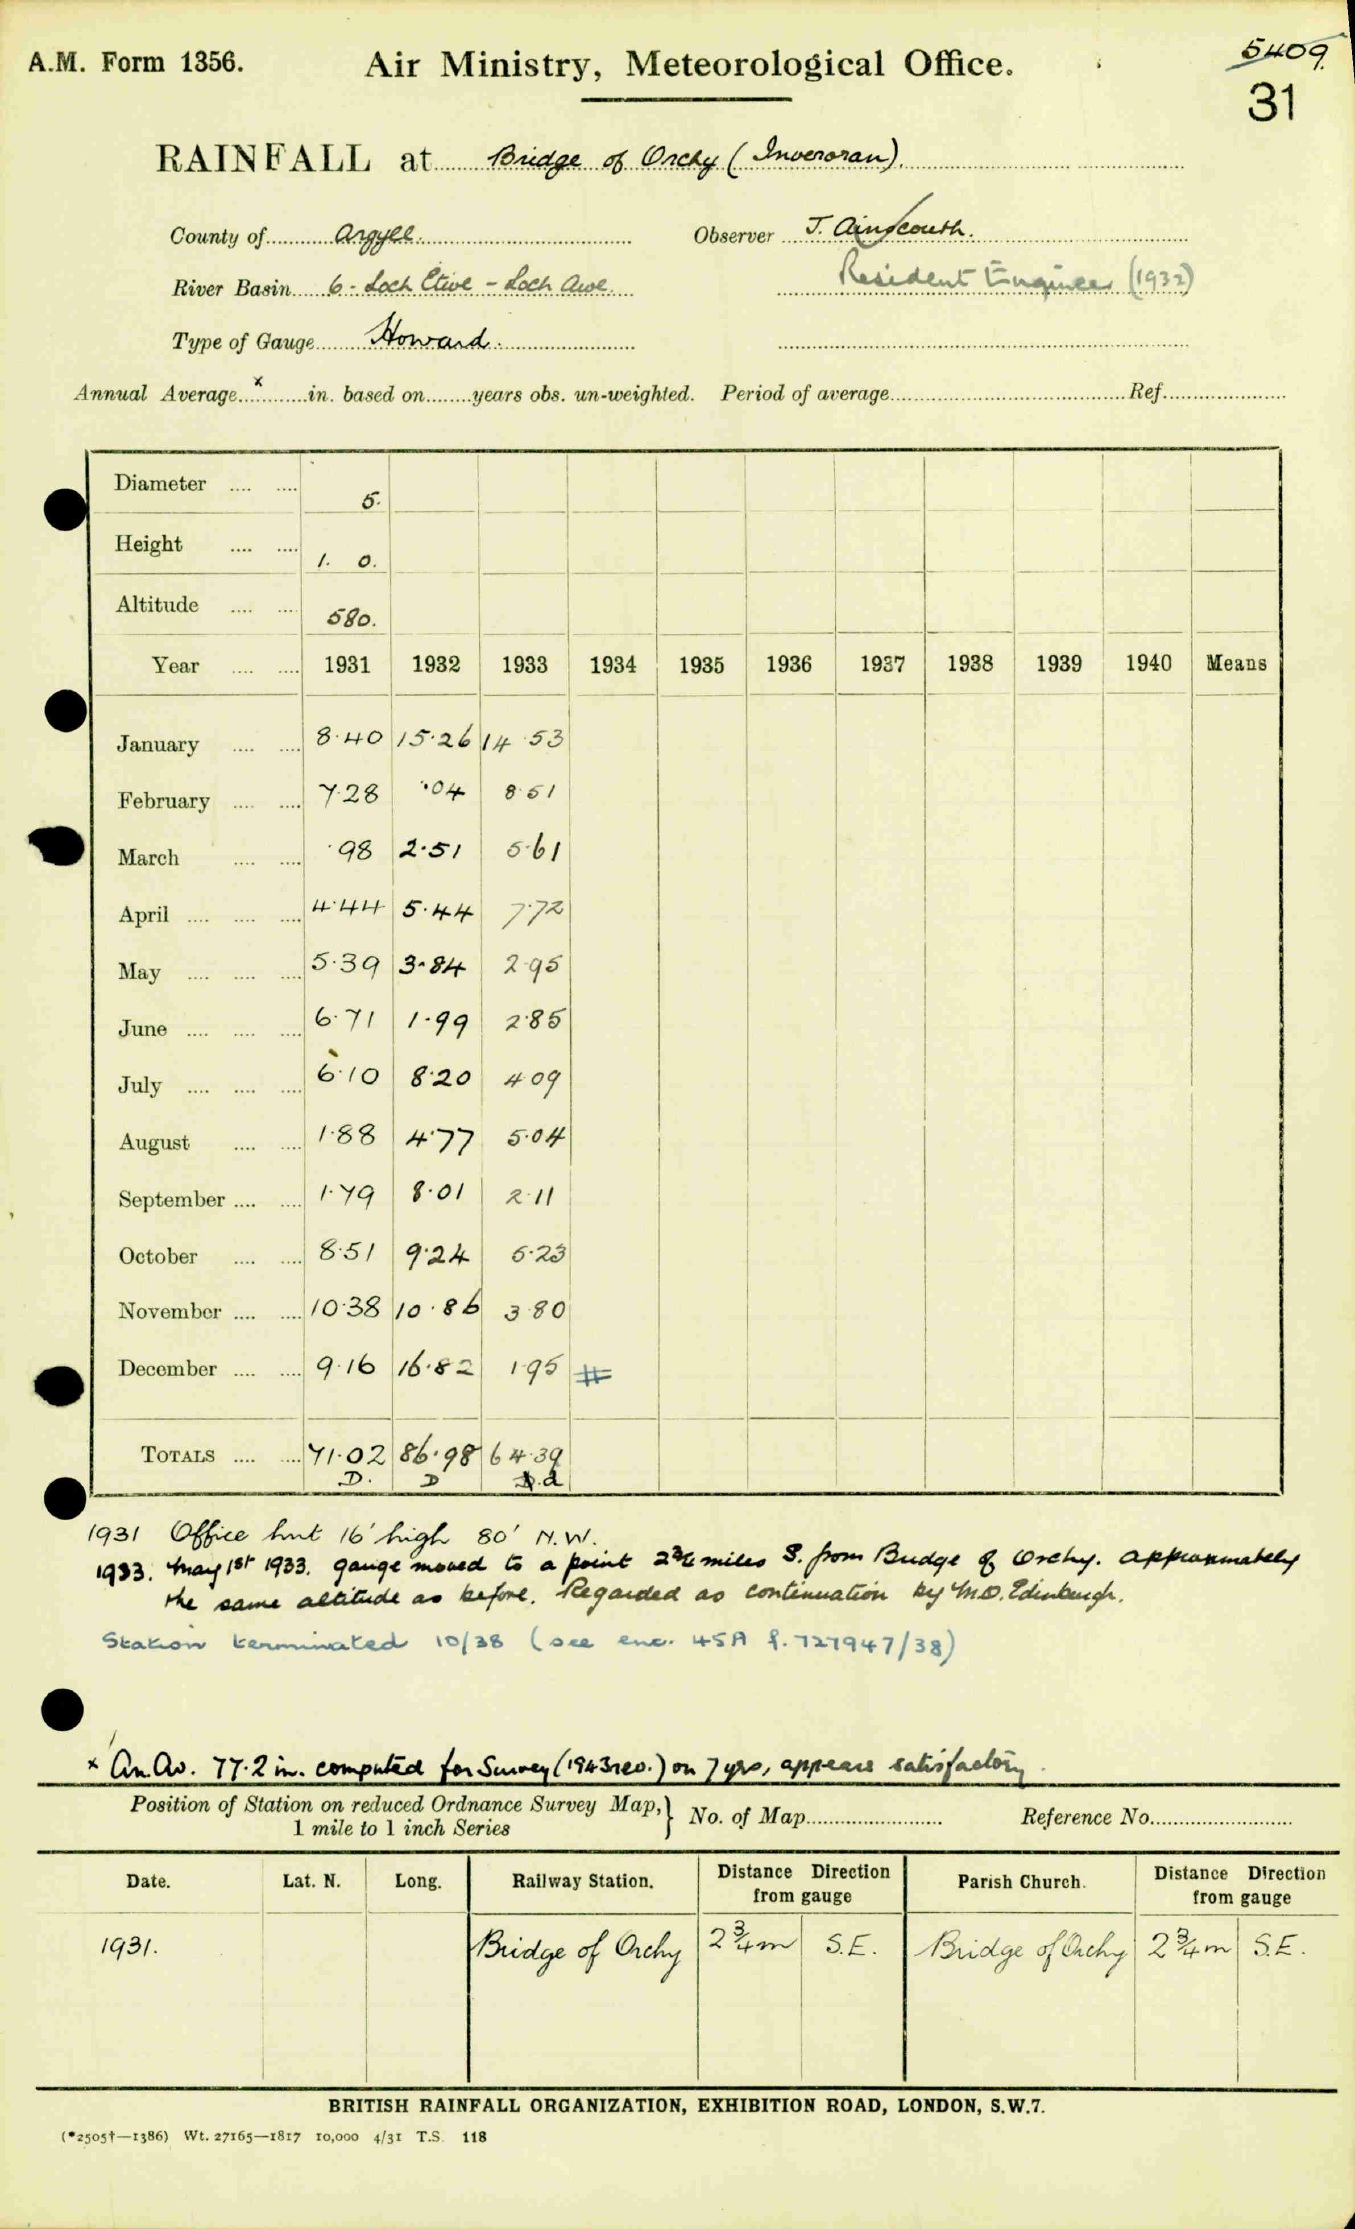 A.M. Form 1356.
Air Ministry, Meteorological Office.
5409.
31
RAINFALL at Bridge of Orchy (Inveroran).
County of Argyll.
Observer J. Ainscouth.
River Basin 6 - Loch Etive - Loch Awe.
Resident Engineer (1932)
Type of Gauge Howard.
Annual Average x in. based on years obs. un-weighted. Period of average Ref.
Diameter 5.
Height 1. 0.
Altitude 580.
Year 1931 1932 1933 1934 1935 1936 1937 1938 1939 1940 Means
January 8.40 15.26 14.53
February 7.28 .04 8.51
March .98 2.51 5.61
April 4.44 5.44 7.72
May 5.39 3.84 2.95
June 6.71 1.99 2.85
July 6.10 8.20 4.09
August 1.88 4.77 5.04
September 1.79 8.01 2.11
October 8.51 9.24 5.23
November 10.38 10.86 3.80
December 9.16 16.82 1.95 #
TOTALS 71.02 86.98 64.39
D. D d
1931 Office hut 16' high 80' N.W.
1933. May 1st 1933. gauge moved to a point 2¾ miles S. from Bridge of Orchy. approximately
the same altitude as before. Regarded as continuation by M.O. Edinburgh.
Station terminated 10/38 (see enc. 45A f. 727947/38)
x An. Av. 77.2 in. computed for Survey (1943 rev.) on 7 yrs, appears satisfactory.
Position of Station on reduced Ordnance Survey Map, } No. of Map Reference No.
1 mile to 1 inch Series
Date. Lat. N. Long. Railway Station. Distance Direction from gauge Parish Church. Distance Direction from gauge
1931. Bridge of Orchy 2¾ m S.E. Bridge of Orchy 2¾ m S.E.
BRITISH RAINFALL ORGANIZATION, EXHIBITION ROAD, LONDON, S.W.7.
(*2505†—1386) Wt. 27165—1817 10,000 4/31 T.S. 118